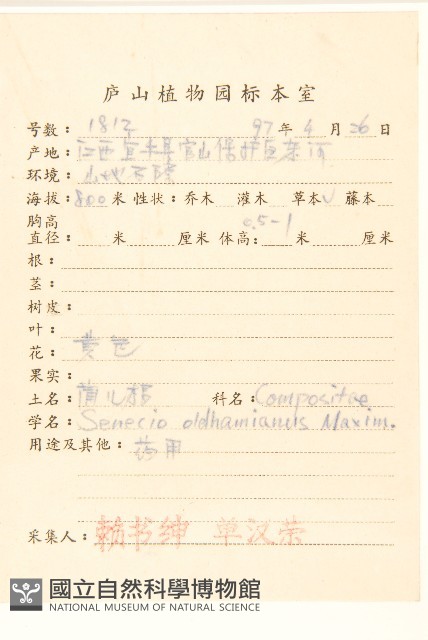 庐山植物园标本室
号数: 1812 97年4月26日
产地: 江西宜丰县官山保护区东河
环境: 山地
海拔: 800米 性状: 乔木 灌木 草本√ 藤本
胸高
直径: 米 厘米 体高: 0.5-1 米 厘米
根:
茎:
树皮:
叶:
花: 黄色
果实:
土名: 蒲儿根 科名: Compositae
学名: Senecio oldhamianus Maxim.
用途及其他: 药用
采集人: 赖书绅 单汉荣
國立自然科學博物館
NATIONAL MUSEUM OF NATURAL SCIENCE